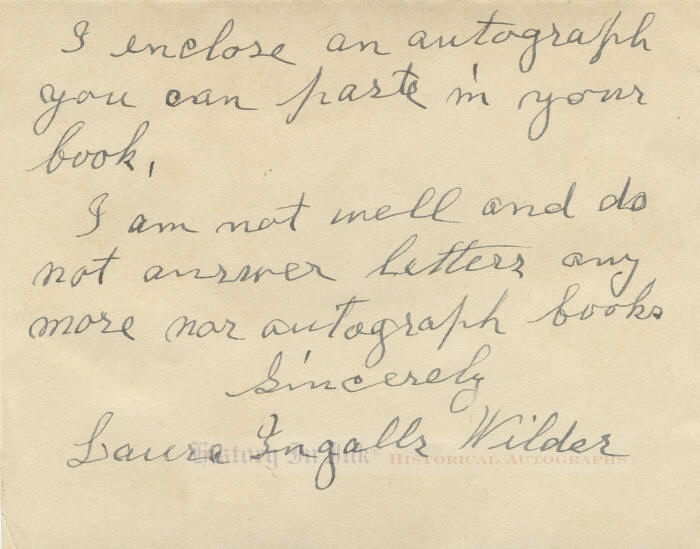 I enclose an autograph
you can paste in your
book.
I am not well and do
not answer letters any
more nor autograph books
Sincerely
Laura Ingalls Wilder
History In Ink® Historical Autographs